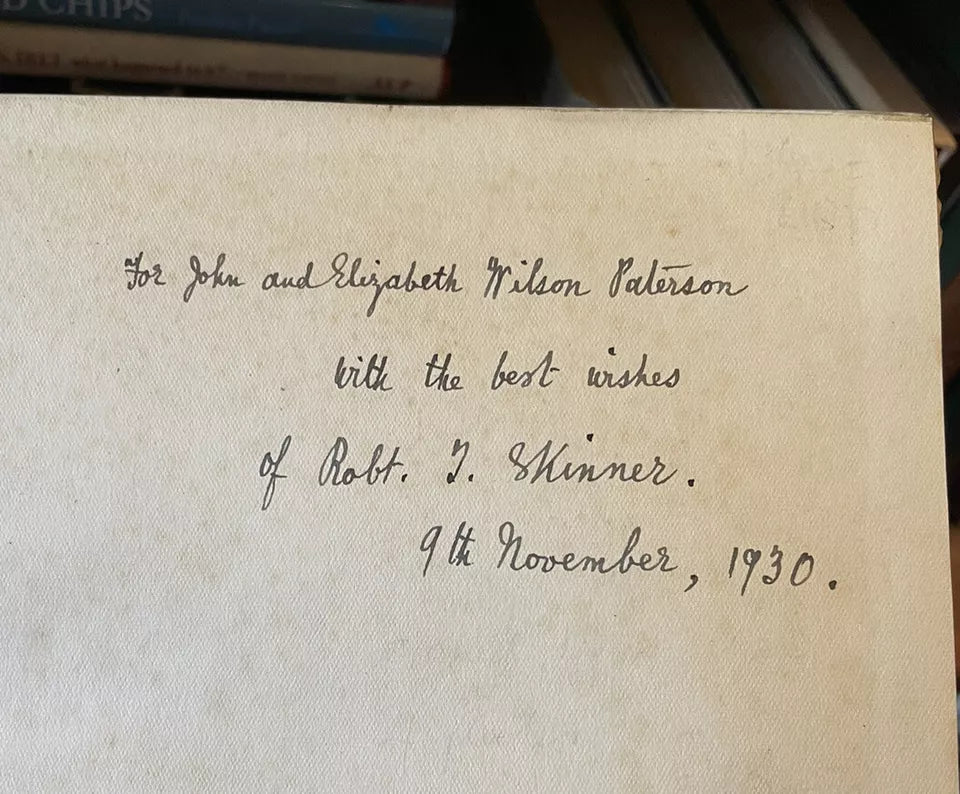 D CHIPS
For John and Elizabeth Wilson Paterson
with the best wishes
of Robt. T. Skinner.
9th November, 1930.